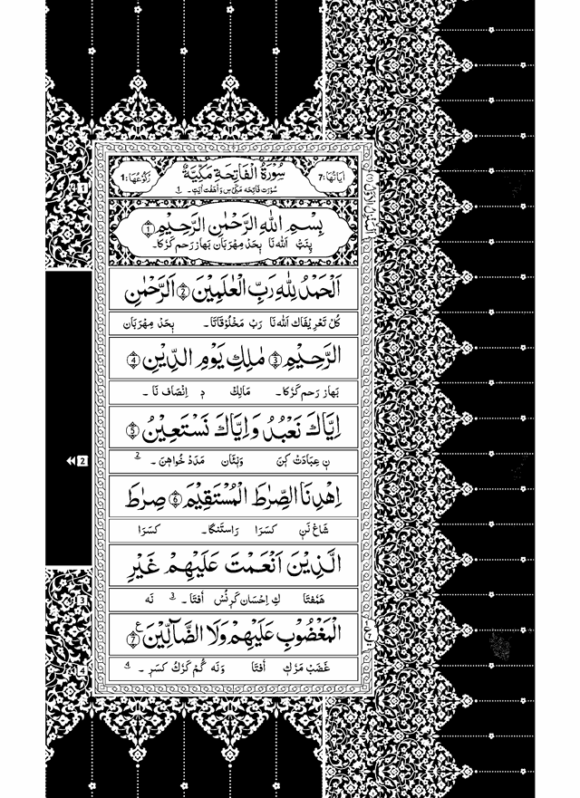 اٰیَاتُهَا:7 سُوْرَةُ الْفَاتِحَةِ مَکِّیَّةٌ رُکُوْعُهَا:1
سُوْرَت فَاتِحَه مَکِّی س وَ اَهفت اٰیَت۔
بِسْمِ اللّٰهِ الرَّحْمٰنِ الرَّحِیْمِ ﴿1﴾
پِنَٹ اَللّٰه نَا بِحَدْ مِهْرَبَان بَهاز رَحم کَرْکا۔
اَلْحَمْدُ لِلّٰهِ رَبِّ الْعٰلَمِیْنَ ﴿2﴾ الرَّحْمٰنِ
کُل تَعْرِیْفَاک اَللّٰه نَا رَبّ مَخْلُوْقَاتَا۔ بِحَدْ مِهْرَبَان
الرَّحِیْمِ ﴿3﴾ مٰلِکِ یَوْمِ الدِّیْنِ ﴿4﴾
بَهاز رَحم کَرْکا۔ مَالِکْ دٕ اِنْصَاف نَا ۔
اِیَّاكَ نَعْبُدُ وَ اِیَّاكَ نَسْتَعِیْنُ ﴿5﴾
نٕ عِبَادَتْ کٕنَ وَنٕیْان مَدَدْ خُواهِنَ ۔ 2
2
اِهْدِنَا الصِّرٰطَ الْمُسْتَقِیْمَ ﴿6﴾ صِرٰطَ
شَاغ نَنٕ کَسَرَا رَاسْتَنْگَا۔ کَسَرَا
الَّذِیْنَ اَنْعَمْتَ عَلَیْهِمْ غَیْرِ
هَمُفْتَا کِ اِحْسَان کَرٕنُسْ اُفْتَا۔ 3 نَه
الْمَغْضُوْبِ عَلَیْهِمْ وَلَا الضَّآلِّیْنَ ﴿7﴾ ع
غَضَبْ مَرٕکْ اُفْتَا وَنَه گُم کَرٕکْ کَسَرٕ ۔ 4